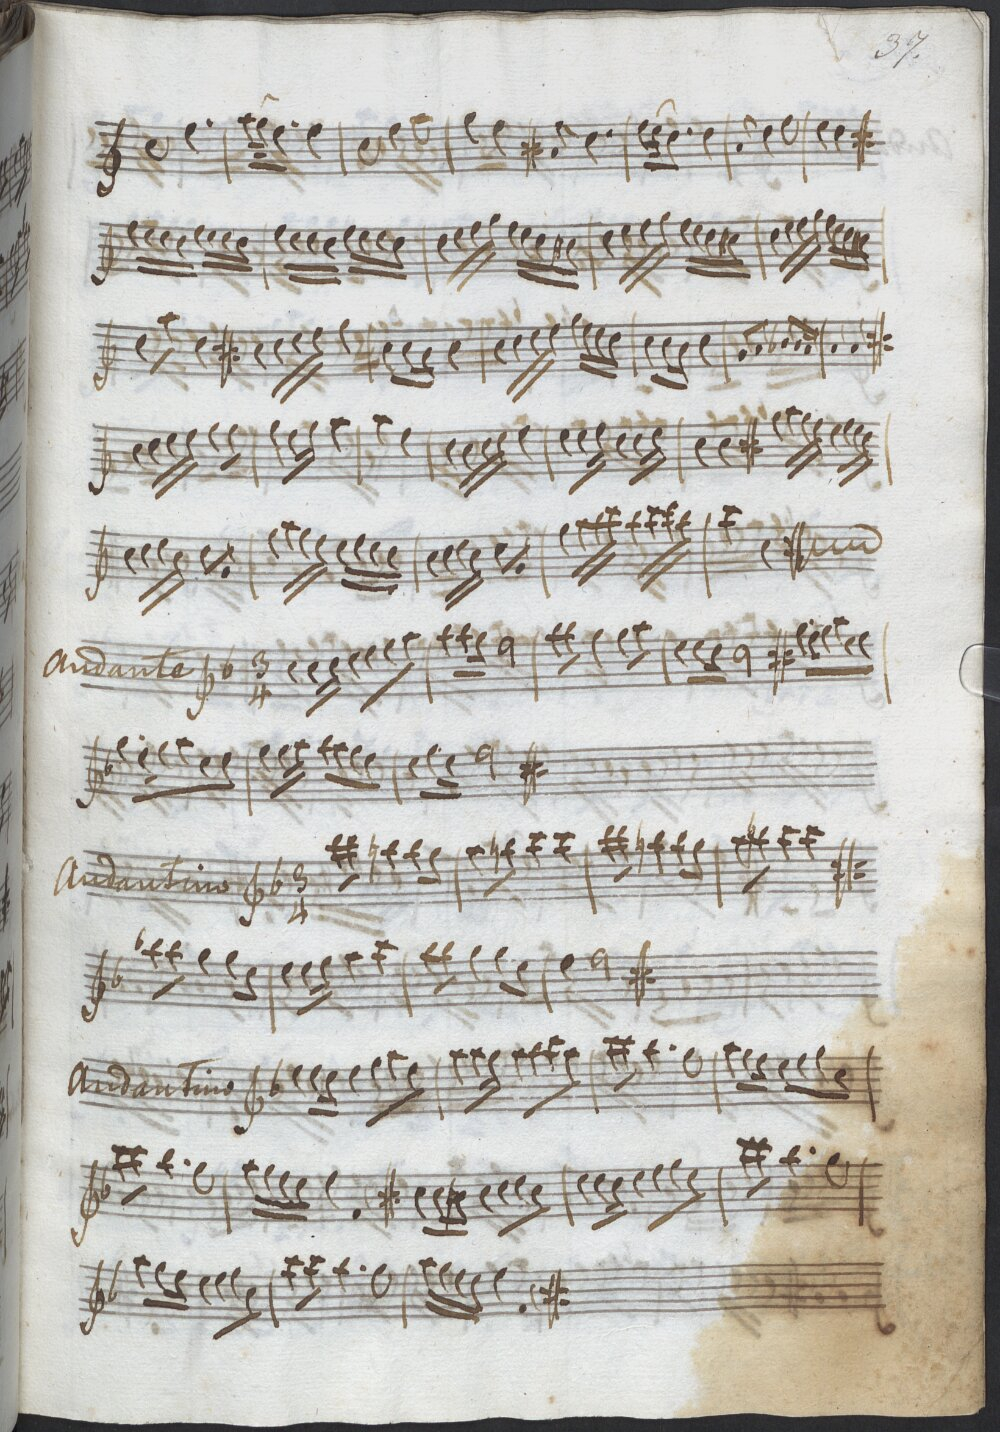 37.
Andante 3 4
Andantino 3 4
Andantino